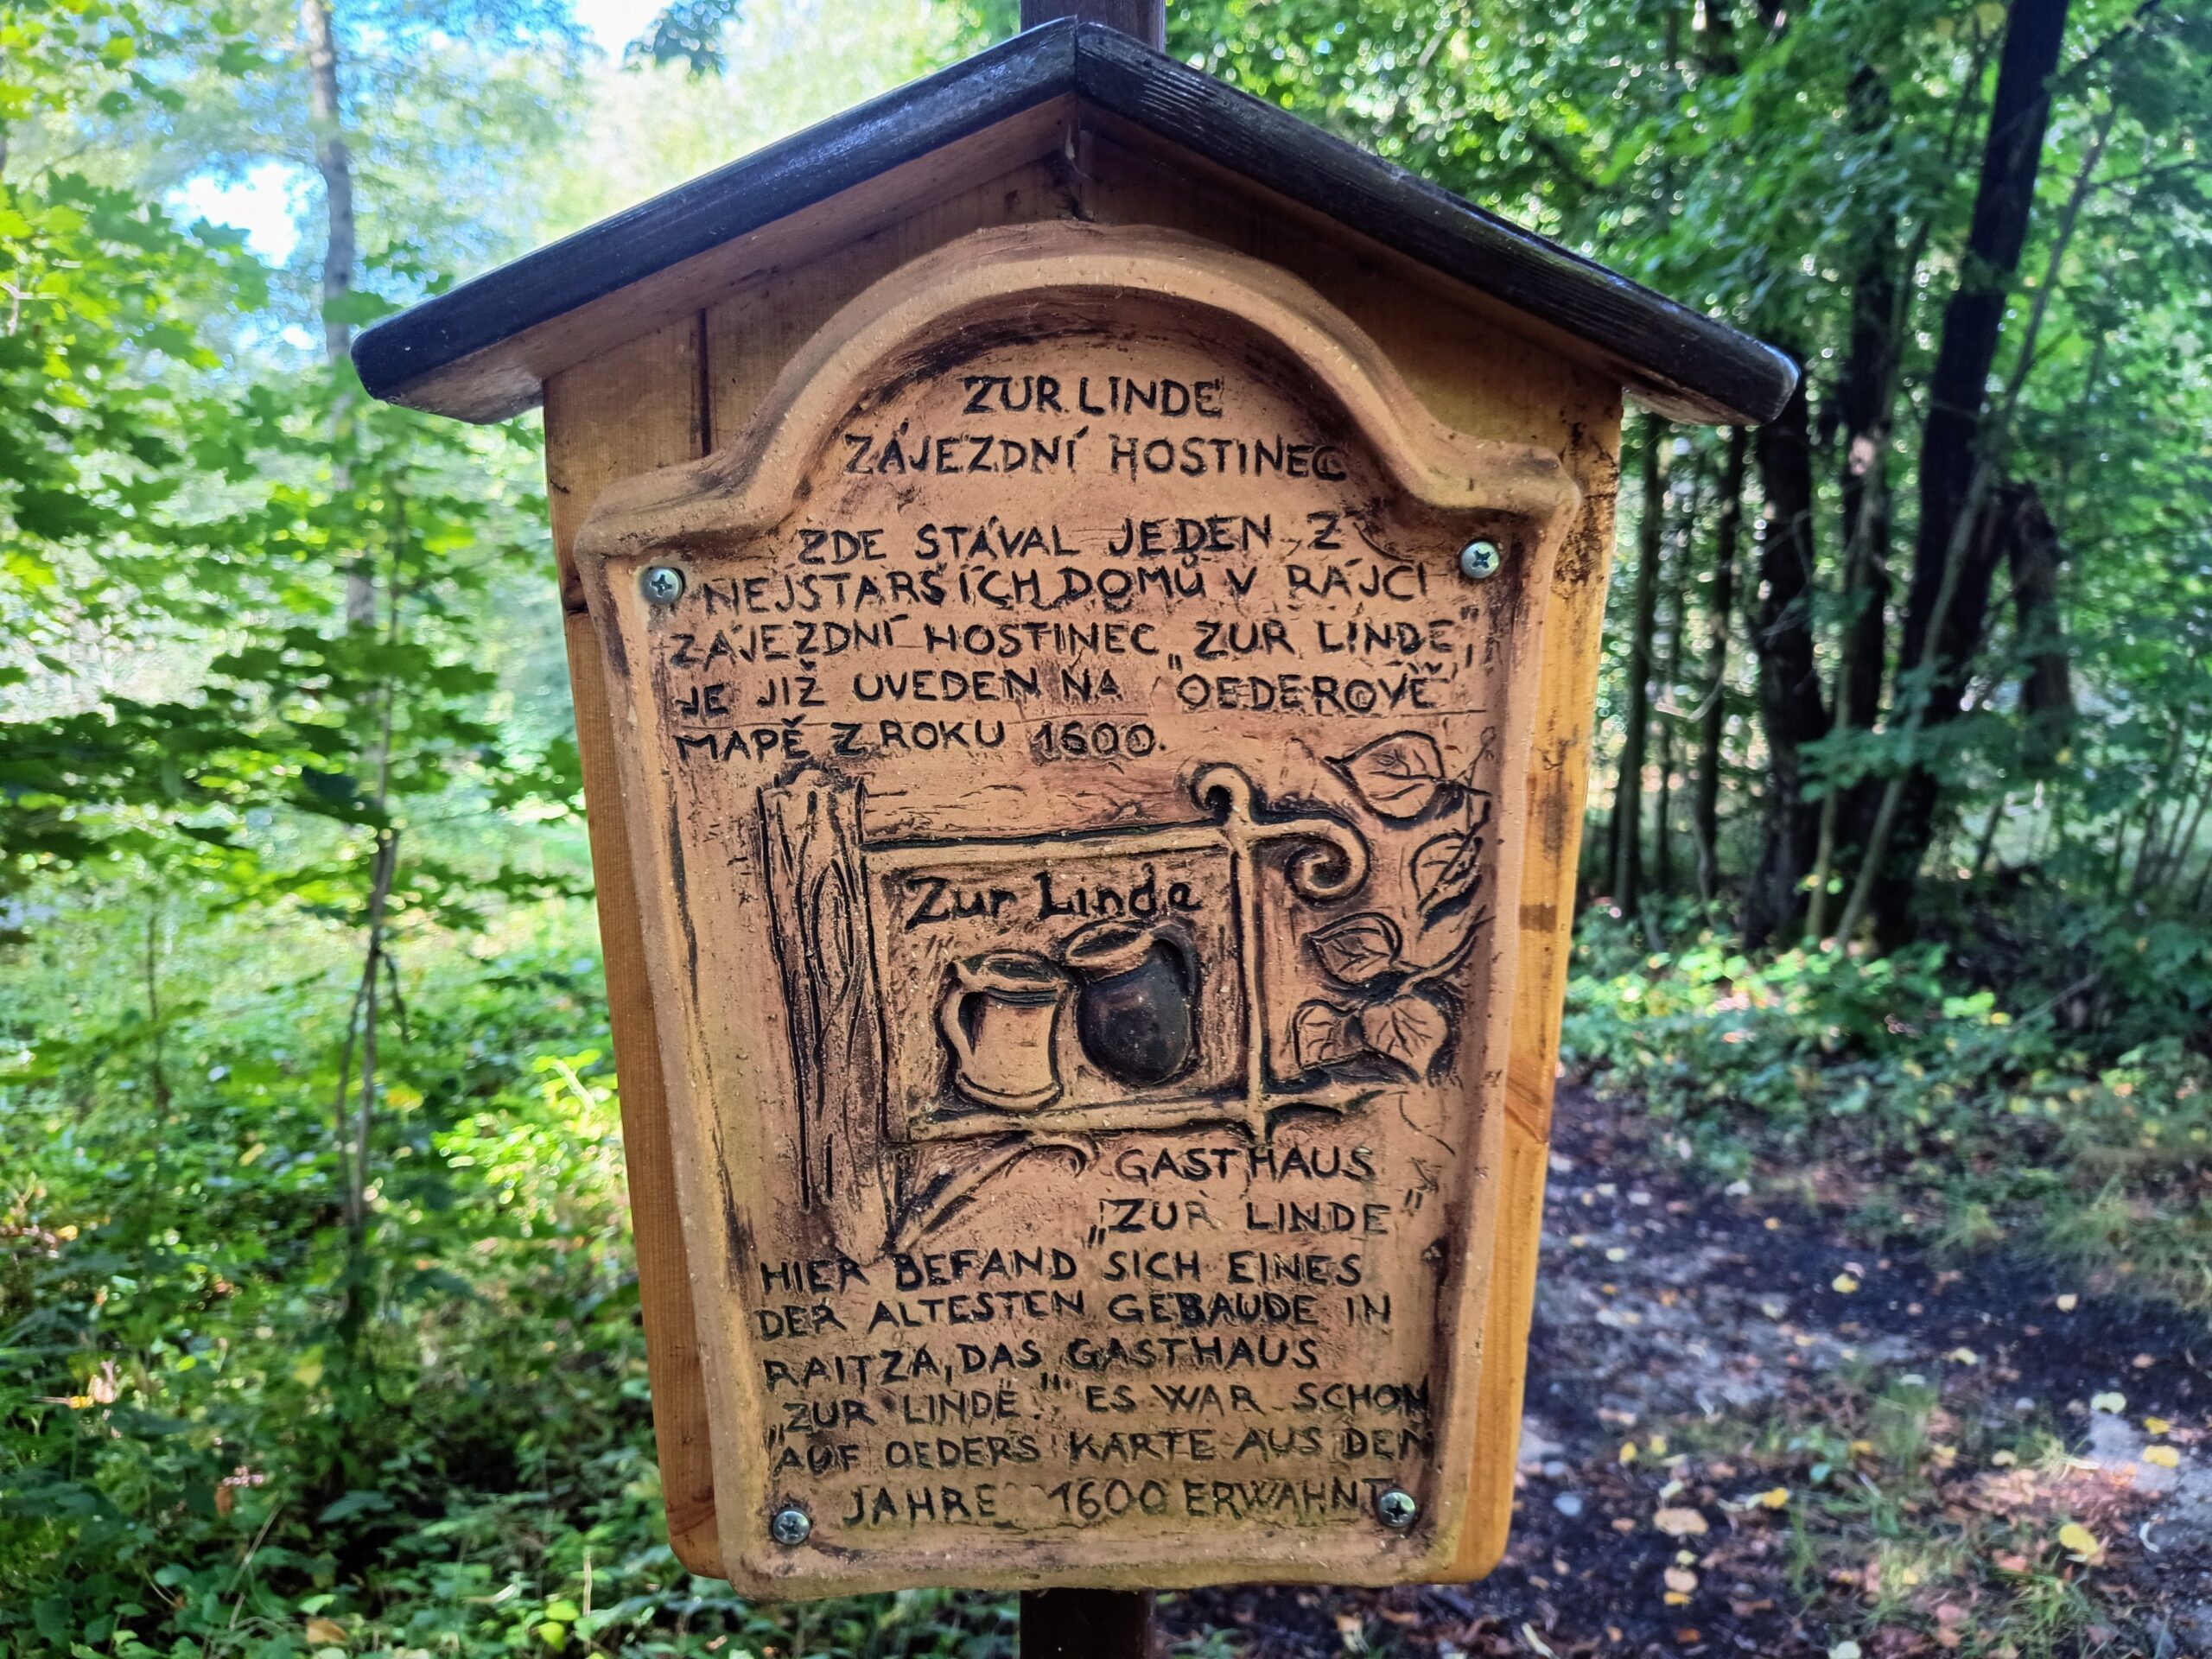 ZUR LINDE
ZÁJEZDNÍ HOSTINEC
ZDE STÁVAL JEDEN Z
NEJSTARŠÍCH DOMŮ V RÁJCI
ZÁJEZDNÍ HOSTINEC „ZUR LINDE",
JE JIŽ UVEDEN NA "OEDEROVĚ"
MAPĚ Z ROKU 1600.
Zur Linde
GASTHAUS
„ZUR LINDE"
HIER BEFAND SICH EINES
DER ALTESTEN GEBAUDE IN
RAITZA, DAS GASTHAUS
„ZUR LINDE." ES WAR SCHON
AUF OEDERS KARTE AUS DEN
JAHRE 1600 ERWAHNT